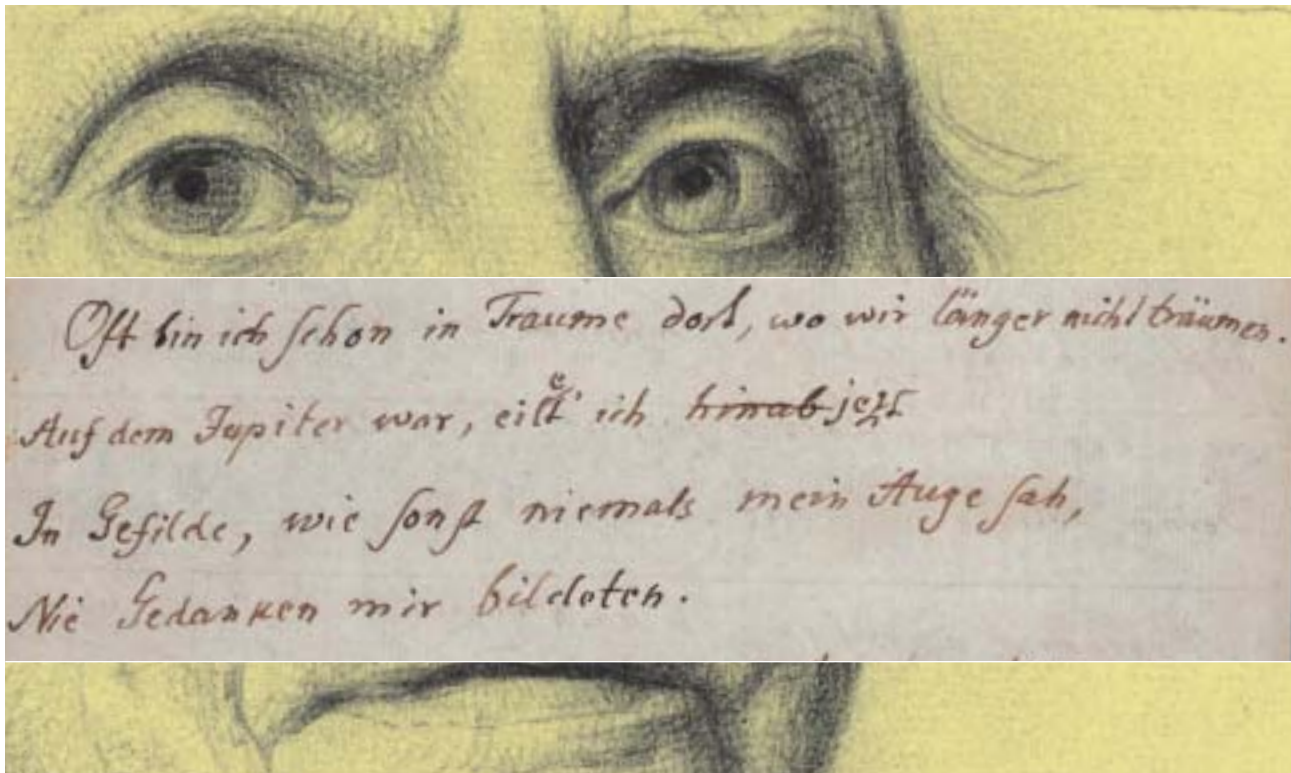 Oft bin ich schon in Traume dort, wo wir länger nicht träumen.
Auf dem Jupiter war, eilet' ich hinab jezt
In Gefilde, wie sonst niemals mein Auge sah,
Nie Gedanken mir bildeten.